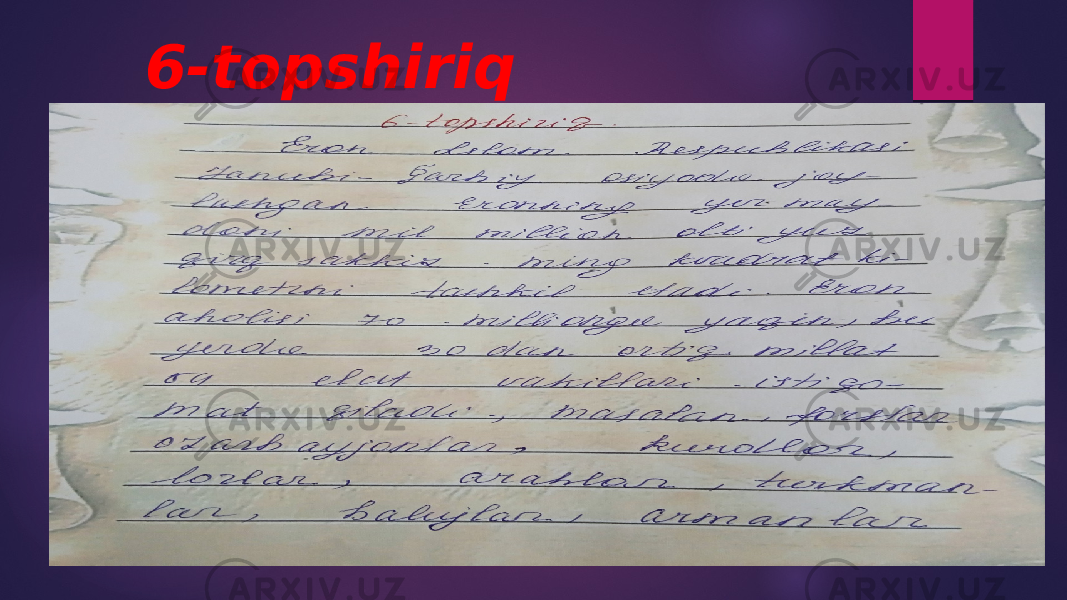 6-topshiriq
6-topshiriq.
Eron Islom Respublikasi
Janubi-Ğarbiy osiyoda joy-
lashgan. Eronning yer may
doni mil million olti yuz
qirq sakkiz ming kvadrat ki-
lometrni tashkil etadi. Eron
aholisi 70 millionga yaqin, bu
yerda 30 dan ortiq millat
va elat vakillari istiqo-
mat qiladi, masalan, forslar
ozarbayjonlar, kurdlar,
lorlar, arablar, turkman-
lar, balujlar, armanlar
ARXIV.UZ
ARXIV.UZ
ARXIV.UZ
ARXIV.UZ
ARXIV.UZ
ARXIV.UZ
ARXIV.UZ
ARXIV.UZ